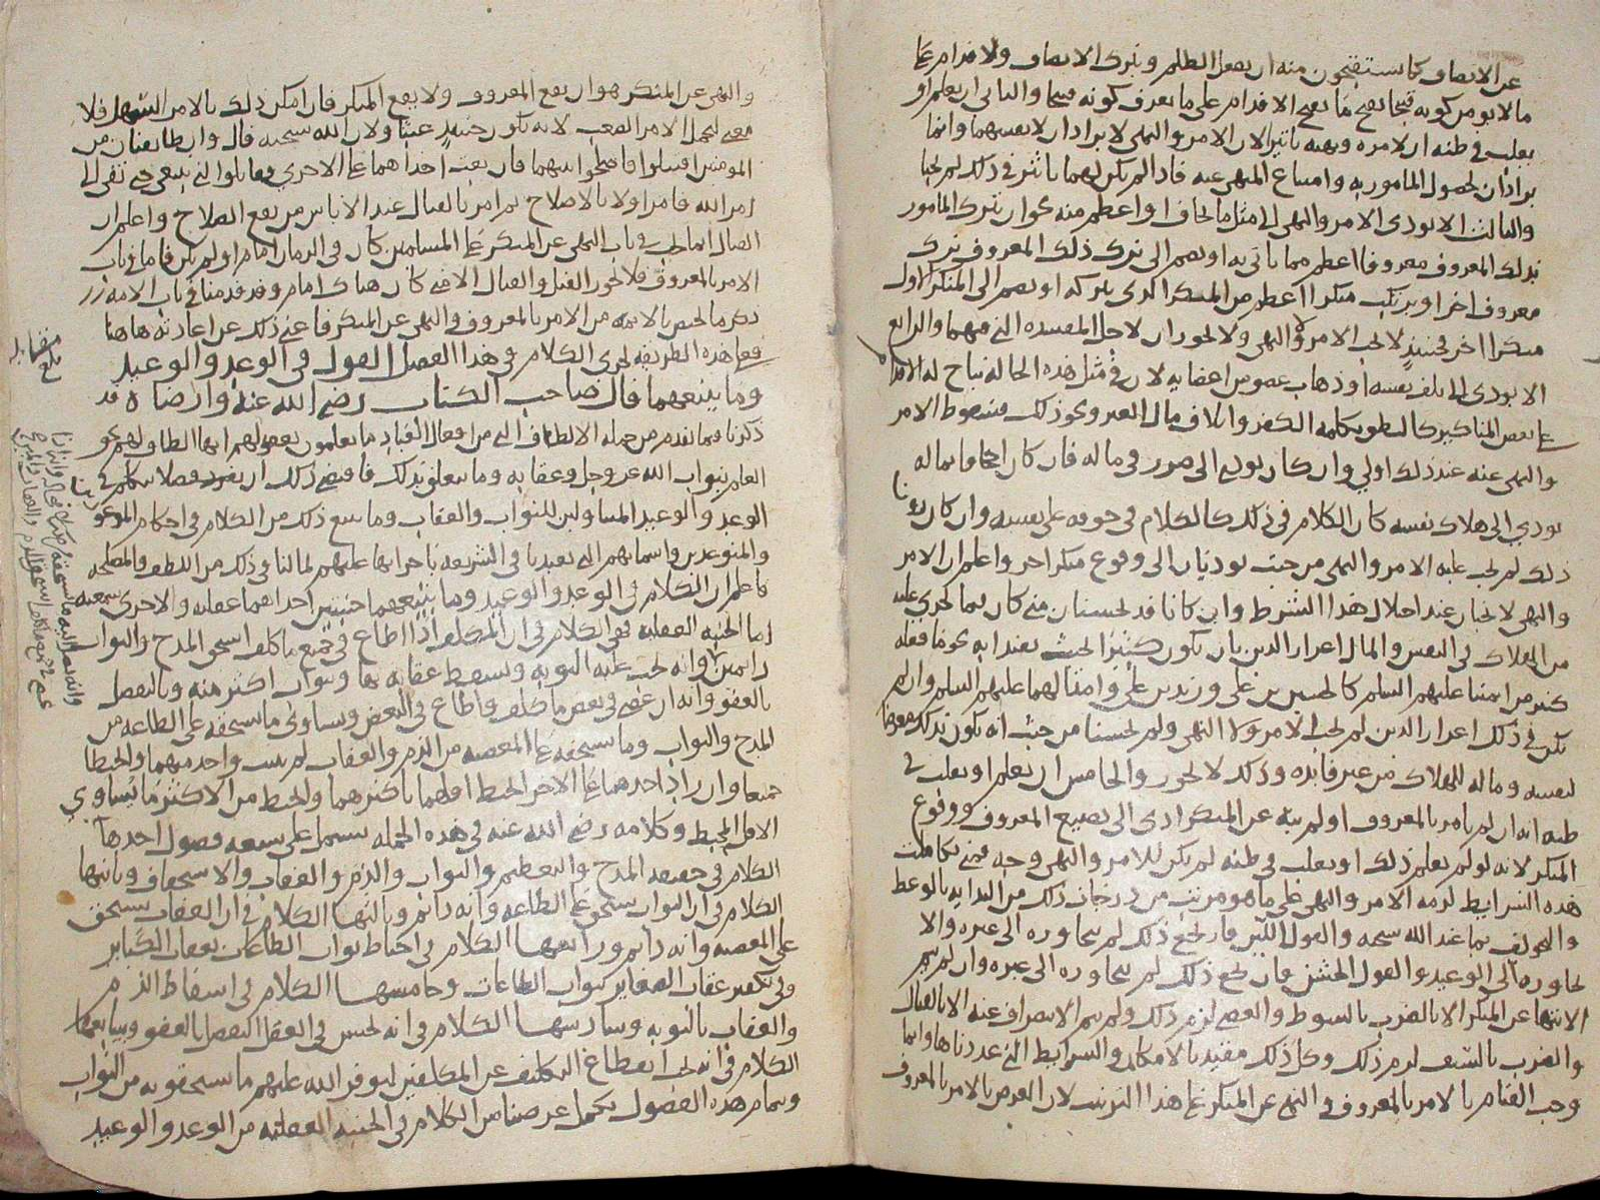 عن الانصاف كما يستقبحون منه ان يفعل الظلم ويترك الانصاف ولاقدام على
ما لا يومن كونه قبيحا يقبح كما يقبح الاقدام على ما يعرف كونه قبيحا والثاني ان يعلم او
يغلب في ظنه ان لامره ونهيه تاثيرا لان الامر والنهي لا يرادان لانفسهما وانما
يرادان لحصول المامور به وامتناع المنهي عنه فاذا لم يكن لهما تاثير في ذلك لم يجبا
والثالث الا يودي الامر والنهي الى مثل ما يخاف او اعظم منه نحو ان يترك المامور
بذلك المعروف معروفا اعظم مما ياتي به او يضم الى ترك ذلك المعروف ترك
معروف اخر او يرتكب منكرا اعظم من المنكر الذي يتركه او يضم الى المنكر الاول
منكرا اخر فحينئذ لا يجب الامر ولا النهي ولا يجوزان لاجل المفسدة التي فيهما والرابع
الا يودي الى تلف نفسه او ذهاب عضو من اعضايه لان في مثل هذه الحالة يباح له الاقدام
على بعض المناكير كالنطق بكلمة الكفر واتلاف مال الغير ونحو ذلك فسقوط الامر
والنهي عنه عند ذلك اولى وان كان يودي الى ضرر في ماله فان كان اجحافا بماله
يودي الى هلاك نفسه كان الكلام في ذلك كالكلام في خوفه على نفسه وان كان دون
ذلك لم يجب عليه الامر والنهي من حيث يوديان الى وقوع منكر اخر واعلم ان الامر
والنهي لا يجبان عند اختلال هذا الشرط وان كانا قد يحسنان متى كان لما يجري عليه
من الهلاك في النفس والمال اعزاز الدين بان يكون كثير يقتدا به نحو ما فعله
كثير من ايمتنا عليهم السلم كالحسين بن علي وزيد بن علي وامثالهما عليهم السلم وان لم
يكن في ذلك اعزاز الدين لم يجب الامر ولا النهي ولم يحسنا من حيث انه يكون بذلك معرضا
لنفسه وماله للهلاك من غير فايدة وذلك لا يجوز والخامس ان يعلم او يغلب في
ظنه انه ان لم يامر بالمعروف او لم ينه عن المنكر ادى الى تضييع المعروف ووقوع
المنكر لانه لو لم يعلم ذلك او يغلب في ظنه لم يكن للامر والنهي وجه فمتى تكاملت
هذه الشرايط لزمه الامر والنهي على ما هو مرتب من درجات ذلك من البداية بالوعظ
والتخويف بما عند الله سبحنه والقول اللين فان نجع ذلك لم يتجاوزه الى غيره والا
تجاوزه الى الوعيد والقول الخشن فان نجع ذلك لم يتجاوزه الى غيره وان لم يتم
الانتها عن المنكر الا بالضرب بالسوط والعصى لزم ذلك ولم يتم الانصراف عنه الا بالقتال
والضرب بالسيف لزم ذلك وكل ذلك مقيد بالامكان والشرايط التي عددناها وانما
وجب القيام بالامر بالمعروف في النهي عن المنكر على هذا الترتيب لان الغرض بالامر بالمعروف
والنهي عن المنكر هو ان يقع المعروف ولا يقع المنكر فان امكن ذلك بالامر السهل فلا
معنى لتحمل الامر الصعب لانه يكون حينئذ عبثا ولان الله سبحنه قال وان طايفتان من
المومنين اقتتلوا فاصلحوا بينهما فان بغت احداهما على الاخرى فقاتلوا التي تبغي حتى تفي الى
امر الله فامر اولا بالاصلاح ثم امر بالقتال عند الاياس من رفع الصلاح واعلم ان
القتال انما يجب في باب النهي عن المنكر على المسلمين كان في الزمان امام او لم يكن فاما في باب
الامر بالمعروف فلا يجوز القتل والقتال الا متى كان هناك امام وقد قدمنا في باب الامامة
ذكر ما يختص بالايمة من الامر بالمعروف والنهي عن المنكر فاغنى ذلك عن اعادته هاهنا
فعلى هذه الطريقة يجري الكلام في هذا الفصل القول في الوعد والوعيد
وما يتبعهما قال صاحب الكتاب رضي الله عنه وارضاه قد
ذكرنا فيما تقدم من جملة الالطاف التي من افعال العباد ما يعلمون بعقولهم انها الطاف لهم نحو
العلم بثواب الله عز وجل وعقابه وما يتعلق بذلك فاقتضى ذلك ان نفرد فصلا نتكلم في
الوعد والوعيد المتناولين للثواب والعقاب وما يتبع ذلك من الكلام في احكام الموعودين
والمتوعدين واسمايهم التي تعبدنا في الشريعة باجرايها عليهم لما لنا في ذلك من اللطف والمصلحة
فاعلم ان الكلام في الوعد والوعيد وما يتبعهما جنبتين احداهما عقلية والاخرى سمعية
اما الجنبة العقلية فهي الكلام في ان المكلف اذا اطاع في جميع ما كلف استحق المدح والثواب
دايمين وانه تجب عليه التوبة ويسقط عقابه بها وبثواب اكثر منه وبالتفضل
بالعفو وانه ان عصى في بعض ما كلف واطاع في البعض وتساوى ما يستحقه على الطاعة من
المدح والثواب وما يستحقه على المعصية من الذم والعقاب لم يثبت واحد منهما وانحبطا
جميعا وان زاد احدهما على الاخر انحبط اقلهما باكثرهما وانحبط من الاكثر ما يساوي
الاقل المحبط وكلامه رضي الله عنه في هذه الجملة يشتمل على سبعة فصول احدها
الكلام في حقيقة المدح والتعظيم والثواب والذم والعقاب والاستخفاف وثانيها
الكلام في ان الثواب يستحق على الطاعة وانه دايم وثالثها الكلام في ان العقاب يستحق
على المعصية وانه دايم ورابعها الكلام في احباط ثواب الطاعات بعقاب الكباير
وفي تكفير عقاب الصغاير بثواب الطاعات وخامسها الكلام في اسقاط الذم
والعقاب بالتوبة وسادسها الكلام في انه يحسن في العقل التفضل بالعفو وسابعها
الكلام في انه يجب انقطاع التكليف عن المكلفين ليوفر الله عليهم ما يستحقونه من الثواب
وبتمام هذه الفصول يكمل غرضنا من الكلام في الجنبة العقلية من الوعد والوعيد